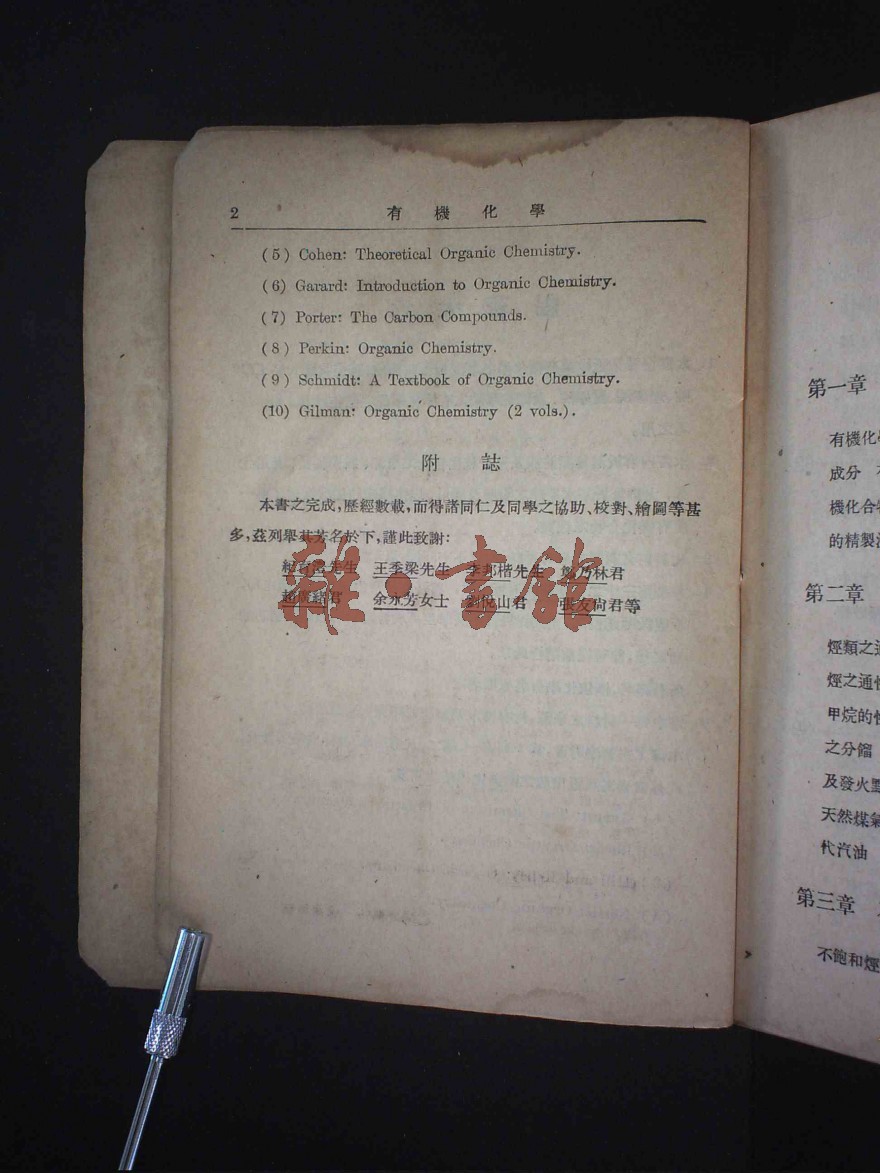 2 有機化學
(5) Cohen: Theoretical Organic Chemistry.
(6) Garard: Introduction to Organic Chemistry.
(7) Porter: The Carbon Compounds.
(8) Perkin: Organic Chemistry.
(9) Schmidt: A Textbook of Organic Chemistry.
(10) Gilman: Organic Chemistry (2 vols.).
附誌
本書之完成,歷經數載,而得諸同仁及同學之協助、校對、繪圖等甚
多,茲列舉其芳名於下,謹此致謝:
先生 王季梁先生 李邦楷先生 乃林君
君 余永芳女士 劉悅山君 張友尙君等
雜·書館
第一章
有機化
成分
機化合
的精製
第二章
烴類之
烴之通
甲烷的
之分餾
及發火
天然煤
代汽油
第三章
不飽和烴